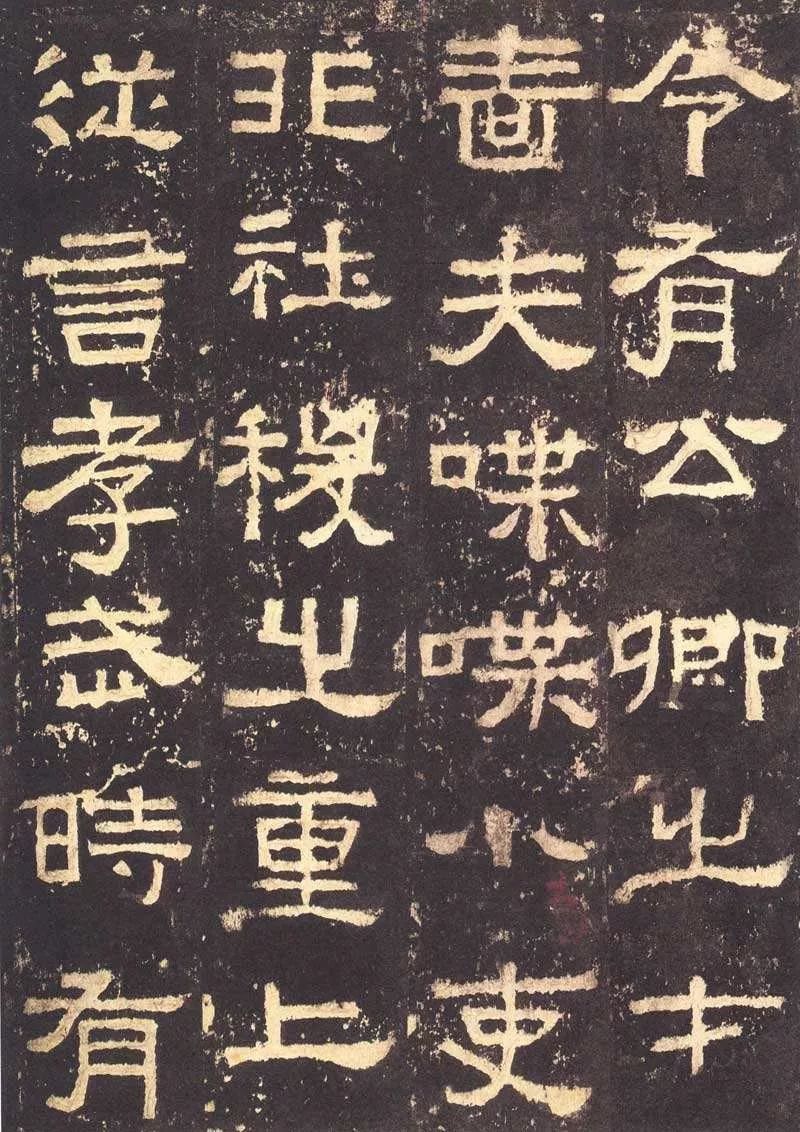 令有公卿之才
啬夫喋喋小吏
非社稷之重上
從言孝武時有